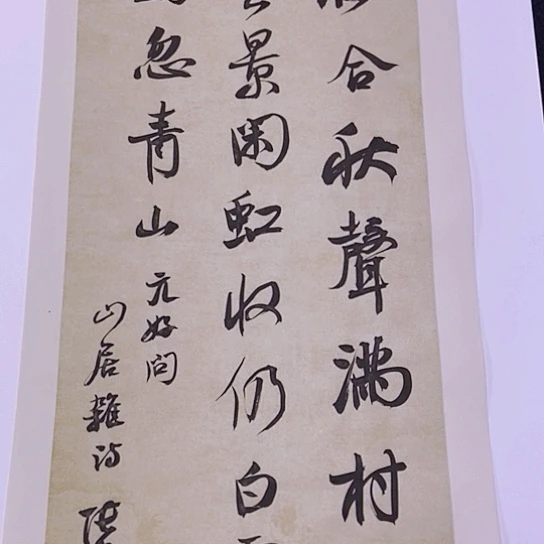 合秋聲滿村
景閑虹收仍白
忽青山 元好問
山居雜詩